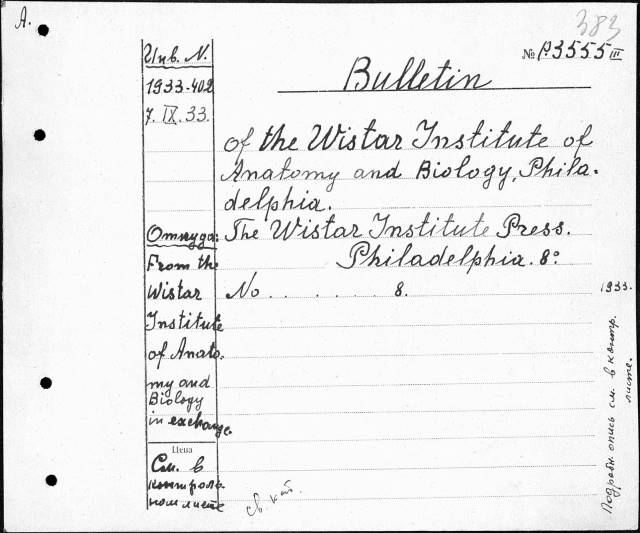 A.
383
№ P.3555 III
Инв. N.
1933-402
7. IX. 33.
Bulletin
of the Wistar Institute of
Anatomy and Biology, Phila-
delphia.
The Wistar Institute Press.
Philadelphia. 8°
No . . . . . . 8. 1933.
Откуда:
From the
Wistar
Institute
of Anato-
my and
Biology
in exchange.
Цена
См. в
контроль-
ном листе
св. кат.
Подробн. опись см. в контр.
листе.